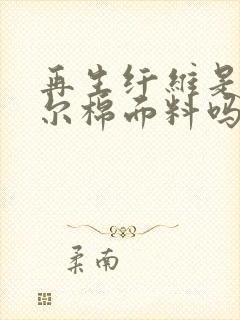 再生纤维是
尔棉而料吗
柔南